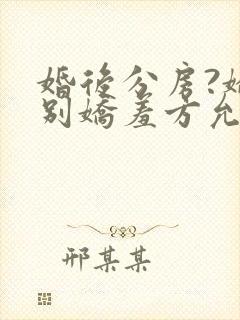 婚後分房?
別嬌羞方允
邢某某